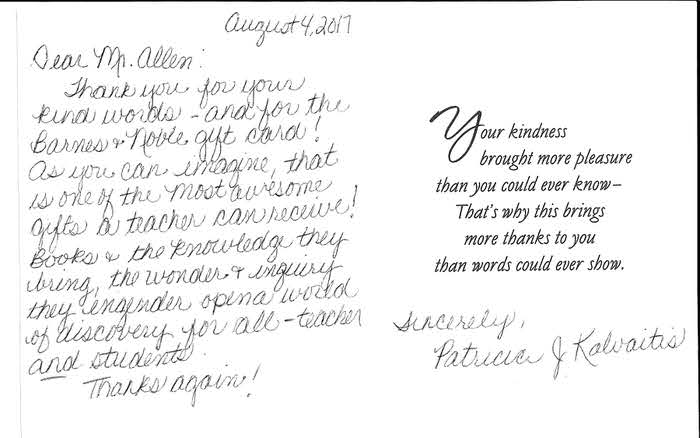 August 4, 2017
Dear Mr. Allen:
Thank you for your
kind words - and for the
Barnes & Noble gift card!
As you can imagine, that
is one of the most awesome
gifts a teacher can receive!
Books & the knowledge they
bring, the wonder & inquiry
they engender open a world
of discovery for all - teacher
and students.
Thanks again!
Your kindness
brought more pleasure
than you could ever know–
That's why this brings
more thanks to you
than words could ever show.
Sincerely,
Patricia J Kalvaitis